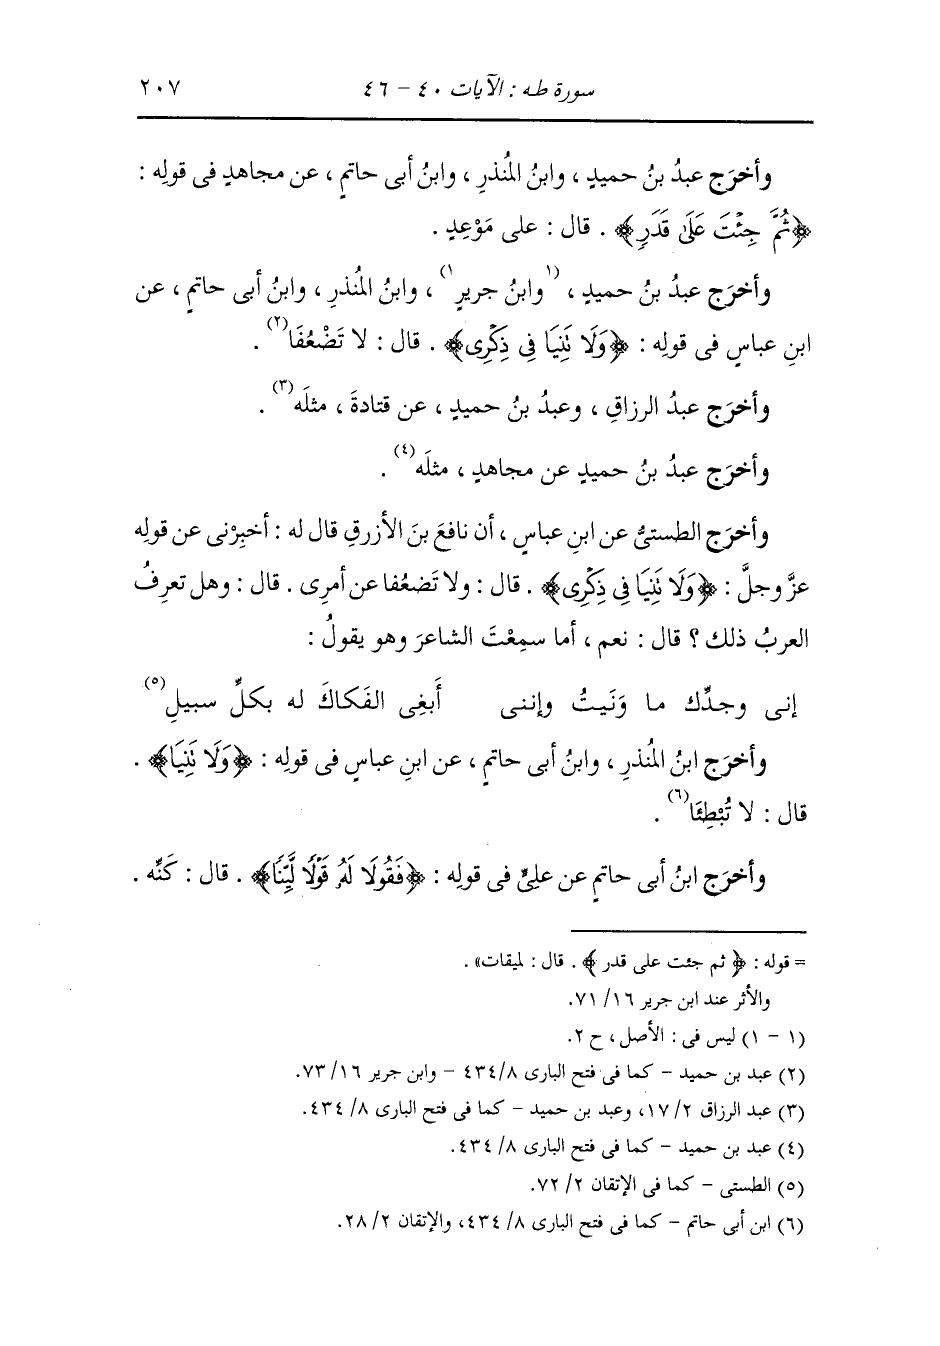 سورة طه : الآيات ٤٠ – ٤٦ ٢٠٧
وأخرَج عبدُ بنُ حميدٍ ، وابنُ المُنذرِ ، وابنُ أبى حاتمٍ ، عن مجاهدٍ فى قولِه :
﴿ثُمَّ جِئْتَ عَلَىٰ قَدَرٍ﴾ . قال : على مَوْعِدٍ .
وأخرَج عبدُ بنُ حميدٍ ، (١وابنُ جريرٍ١) ، وابنُ المُنذرِ ، وابنُ أبى حاتمٍ ، عن
ابنِ عباسٍ فى قولِه : ﴿وَلَا تَنِيَا فِى ذِكْرِى﴾ . قال : لا تَضْعُفَا(٢) .
وأخرَج عبدُ الرزاقِ ، وعبدُ بنُ حميدٍ ، عن قتادةَ ، مثلَه(٣) .
وأخرَج عبدُ بنُ حميدٍ عن مجاهدٍ ، مثلَه(٤) .
وأخرَج الطستىُّ عن ابنِ عباسٍ ، أن نافعَ بنَ الأزرقِ قال له : أخبِرْنى عن قولِه
عزَّ وجلَّ : ﴿وَلَا تَنِيَا فِى ذِكْرِى﴾ . قال : ولا تَضعُفا عن أمرِى . قال : وهل تعرِفُ
العربُ ذلك ؟ قال : نعم ، أما سمِعْتَ الشاعرَ وهو يقولُ :
إنى وجدِّك ما وَنَيتُ وإننى أَبغِى الفَكاكَ له بكلِّ سبيلِ(٥)
وأخرَج ابنُ المُنذرِ ، وابنُ أبى حاتمٍ ، عن ابنِ عباسٍ فى قولِه : ﴿وَلَا تَنِيَا﴾ .
قال : لا تُبْطِئَا(٦) .
وأخرَج ابنُ أبى حاتمٍ عن علىٍّ فى قولِه : ﴿فَقُولَا لَهُۥ قَوْلًا لَّيِّنًا﴾ . قال : كَنِّه .
= قوله : ﴿ ثم جئت على قدر ﴾ . قال : لميقات» .
والأثر عند ابن جرير ١٦/ ٧١.
(١ – ١) ليس فى : الأصل ، ح ٢.
(٢) عبد بن حميد – كما فى فتح البارى ٨/ ٤٣٤ – وابن جرير ١٦/ ٧٣.
(٣) عبد الرزاق ٢/ ١٧، وعبد بن حميد – كما فى فتح البارى ٨/ ٤٣٤.
(٤) عبد بن حميد – كما فى فتح البارى ٨/ ٤٣٤.
(٥) الطستى – كما فى الإتقان ٢/ ٧٢.
(٦) ابن أبى حاتم – كما فى فتح البارى ٨/ ٤٣٤، والإتقان ٢/ ٢٨.